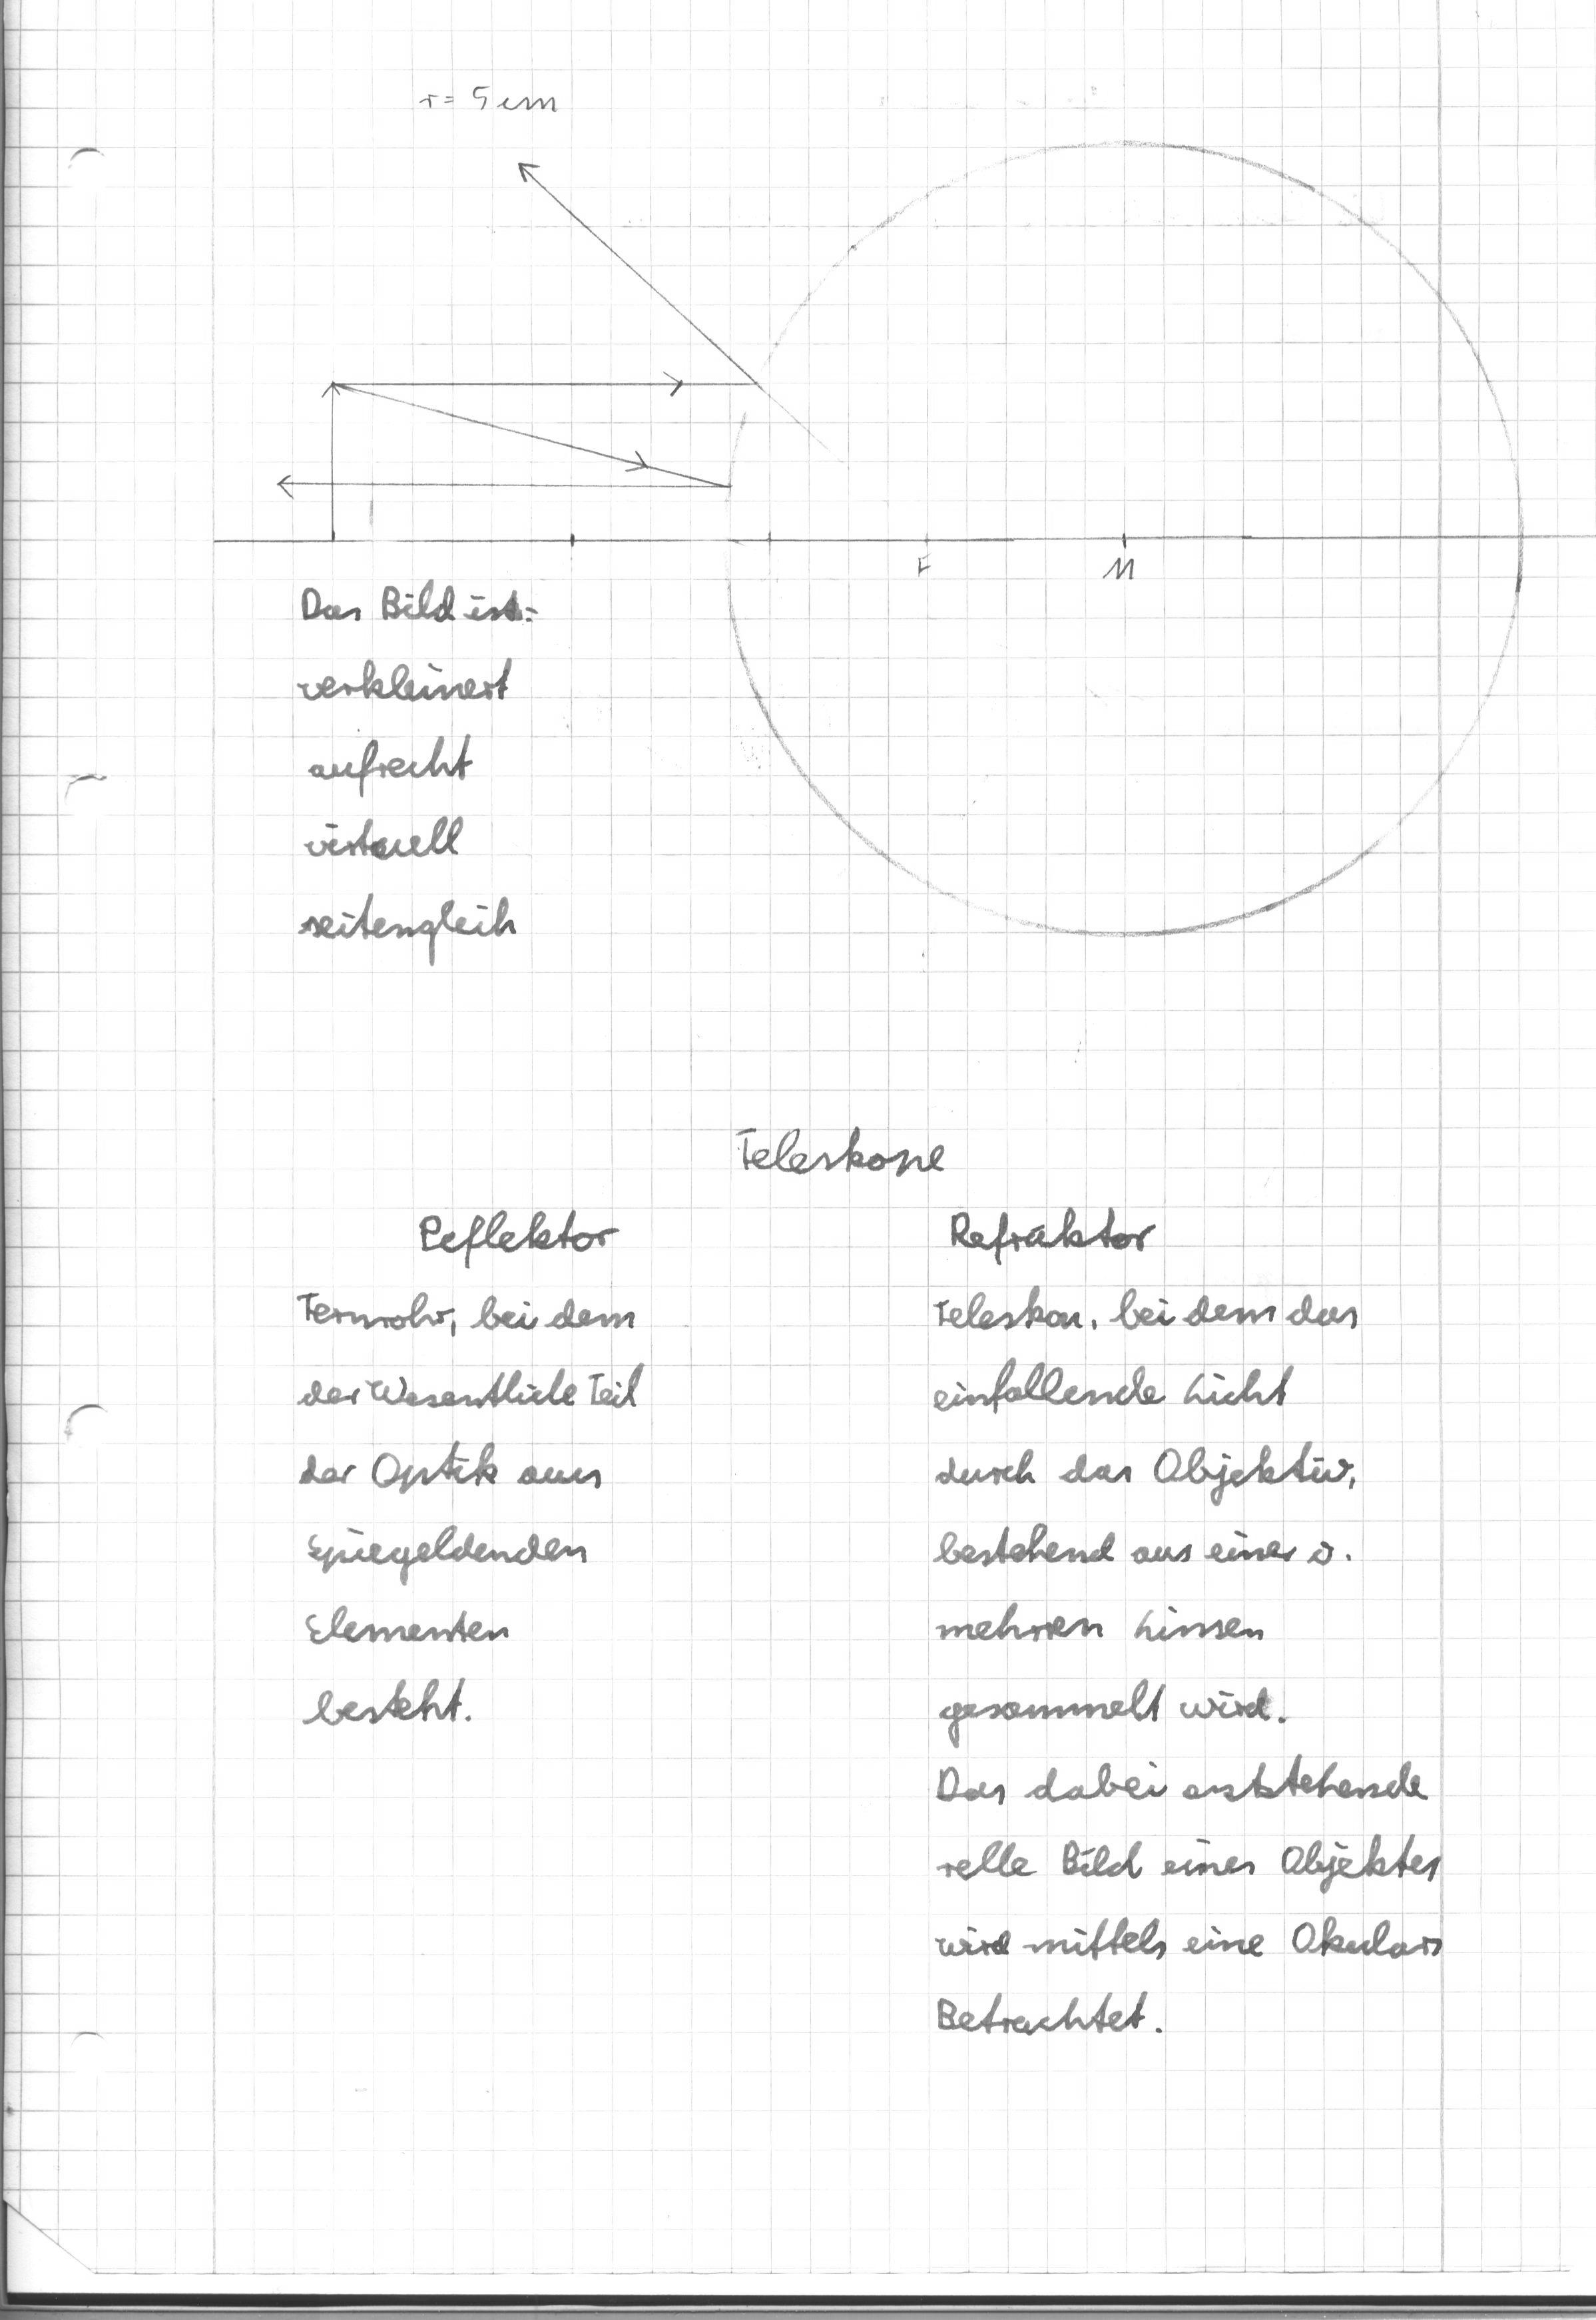 r = 5 cm
F
M
Das Bild ist:
verkleinert
aufrecht
virtuell
seitengleih
Teleskope
Reflektor
Fernrohr, bei dem
der Wesentliche Teil
der Optik aus
Spiegeldenden
Elementen
besteht.
Refraktor
Teleskop, bei dem das
einfallende Licht
durch das Objektiv,
bestehend aus einer o.
mehren Linsen
gesammelt wird.
Das dabei enststehende
relle Bild eines Objektes
wird mittels eine Okulars
Betrachtet.